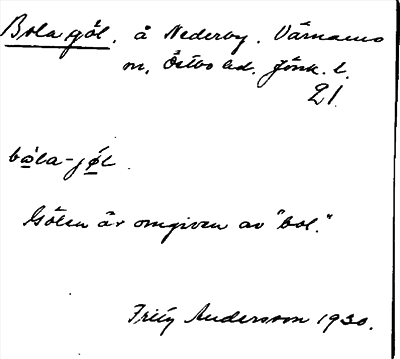 Bola göl. å Nederby. Värnamo
sn, Östbo hd. Jönk. l.
21
bo̲la-jø̲l.
Gölen är omgiven av "bol."
Fritz Andersson 1930.